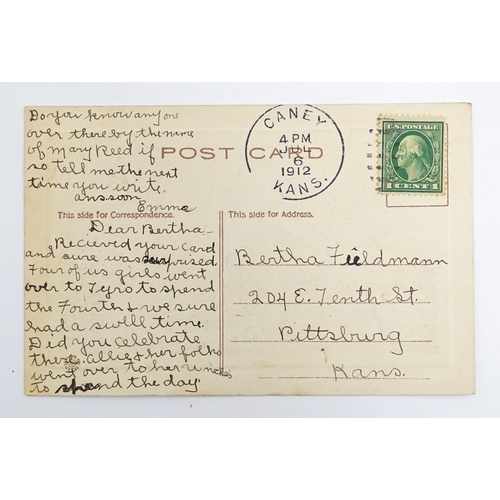 Do you know any one
over there by the name
of Mary Reed if
so tell me the next
time you write.
ans soon
Emma
POST CARD
CANEY
4 PM
JUL
6
1912
KANS.
U.S. POSTAGE
1 CENT 1
This side for Correspondence.
Dear Bertha-
Recieved your card
and sure was surprised
Four of us girls went
over to Tyro to spend
the Fourth & we sure
had a swell time.
Did you celebrate
there. Allie & her folks
went over to her uncles
to spend the day.
This side for Address.
Bertha Fieldmann
204 E. Tenth St.
Pittsburg
Kans.